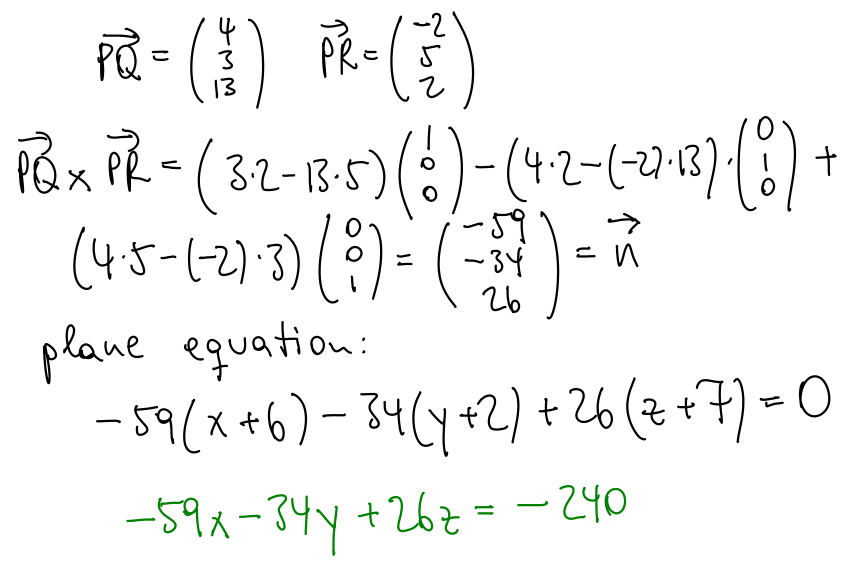 \vec{PQ} = \begin{pmatrix} 4 \\ 3 \\ 13 \end{pmatrix} \vec{PR} = \begin{pmatrix} -2 \\ 5 \\ 2 \end{pmatrix}
\vec{PQ} × \vec{PR} = (3·2-13·5) \begin{pmatrix} 1 \\ 0 \\ 0 \end{pmatrix} - (4·2-(-2)·13)·\begin{pmatrix} 0 \\ 1 \\ 0 \end{pmatrix} +
(4·5-(-2)·3) \begin{pmatrix} 0 \\ 0 \\ 1 \end{pmatrix} = \begin{pmatrix} -59 \\ -34 \\ 26 \end{pmatrix} = \vec{n}
plane equation:
-59(x+6) - 34(y+2) + 26(z+7) = 0
-59x - 34y + 26z = -240